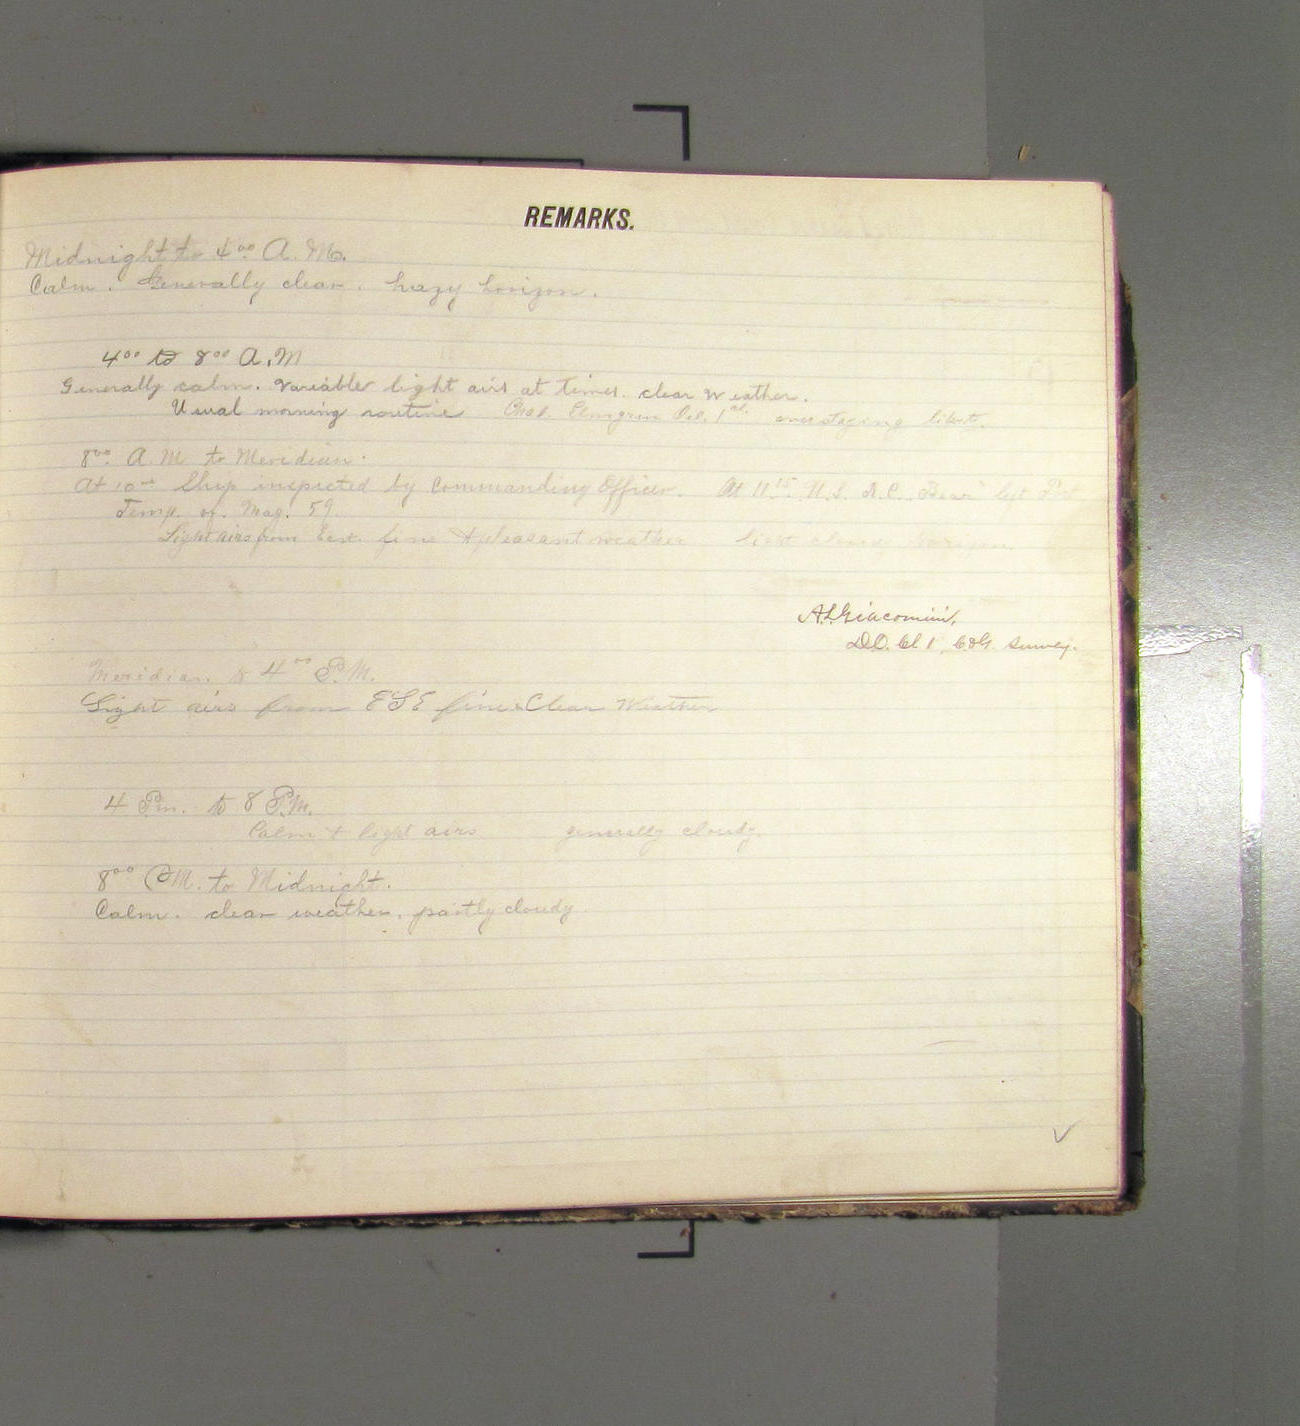 REMARKS.
Midnight to 4°° A.M.
Calm. Generally clear. hazy horizon.
4°° to 8°° A.M
Generally calm. Variable light airs at times. clear weather.
Usual morning routine Chas. Elmgren 1st overstaying libert.
8°° A.M to Meridian.
At 10°° Ship inspected by Commanding Officer. At 11¹⁵ U.S. R.C. "Bear" left Port
Temp. of. Mag. 59.
Light airs from East. fine & pleasant weather light cloudy horizon
A.L. Giacomini,
D.O. Cl 1, C&G. Survey.
Meridian. to 4°° P.M.
Light airs from ESE fine & Clear Weather
4 Pm. to 8 P.M.
Calm & light airs generally cloudy.
8°° P.M. to Midnight.
Calm. clear weather, partly cloudy